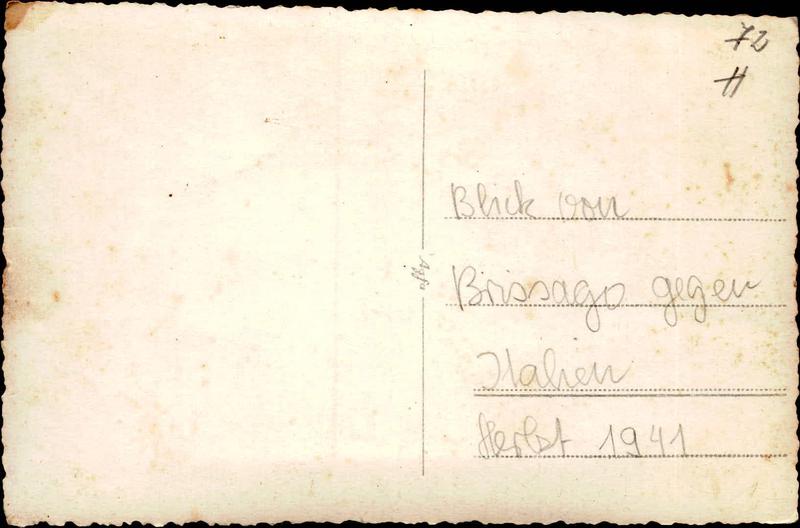 72
H
Blick von
Brissago gegen
Italien
Herbst 1941
Agfa